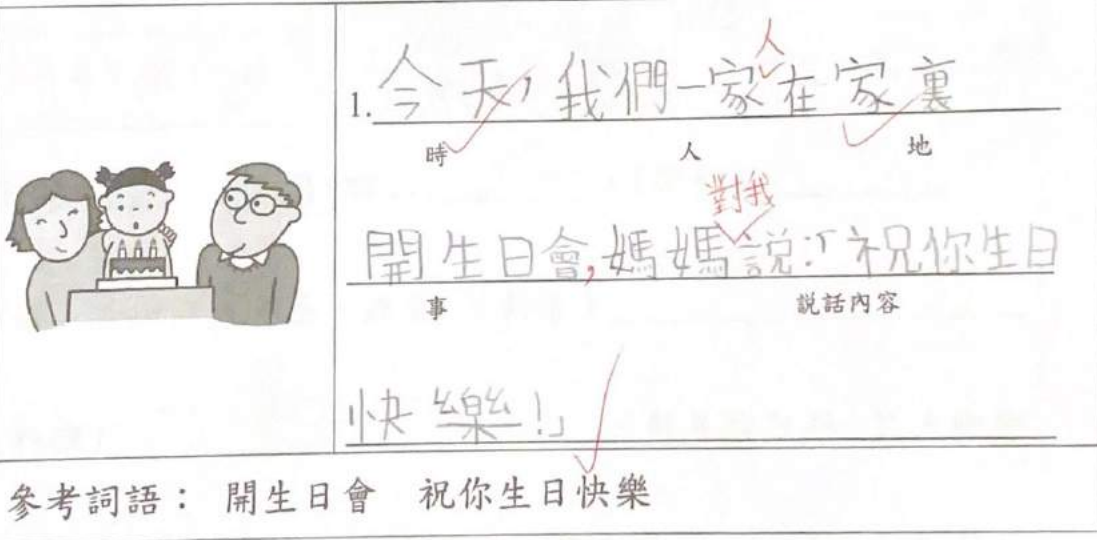 人
1. 今天,我們一家在家裏
時 人 地
對我
開生日會,媽媽說:「祝你生日
事 説話內容
快樂!」
參考詞語: 開生日會 祝你生日快樂